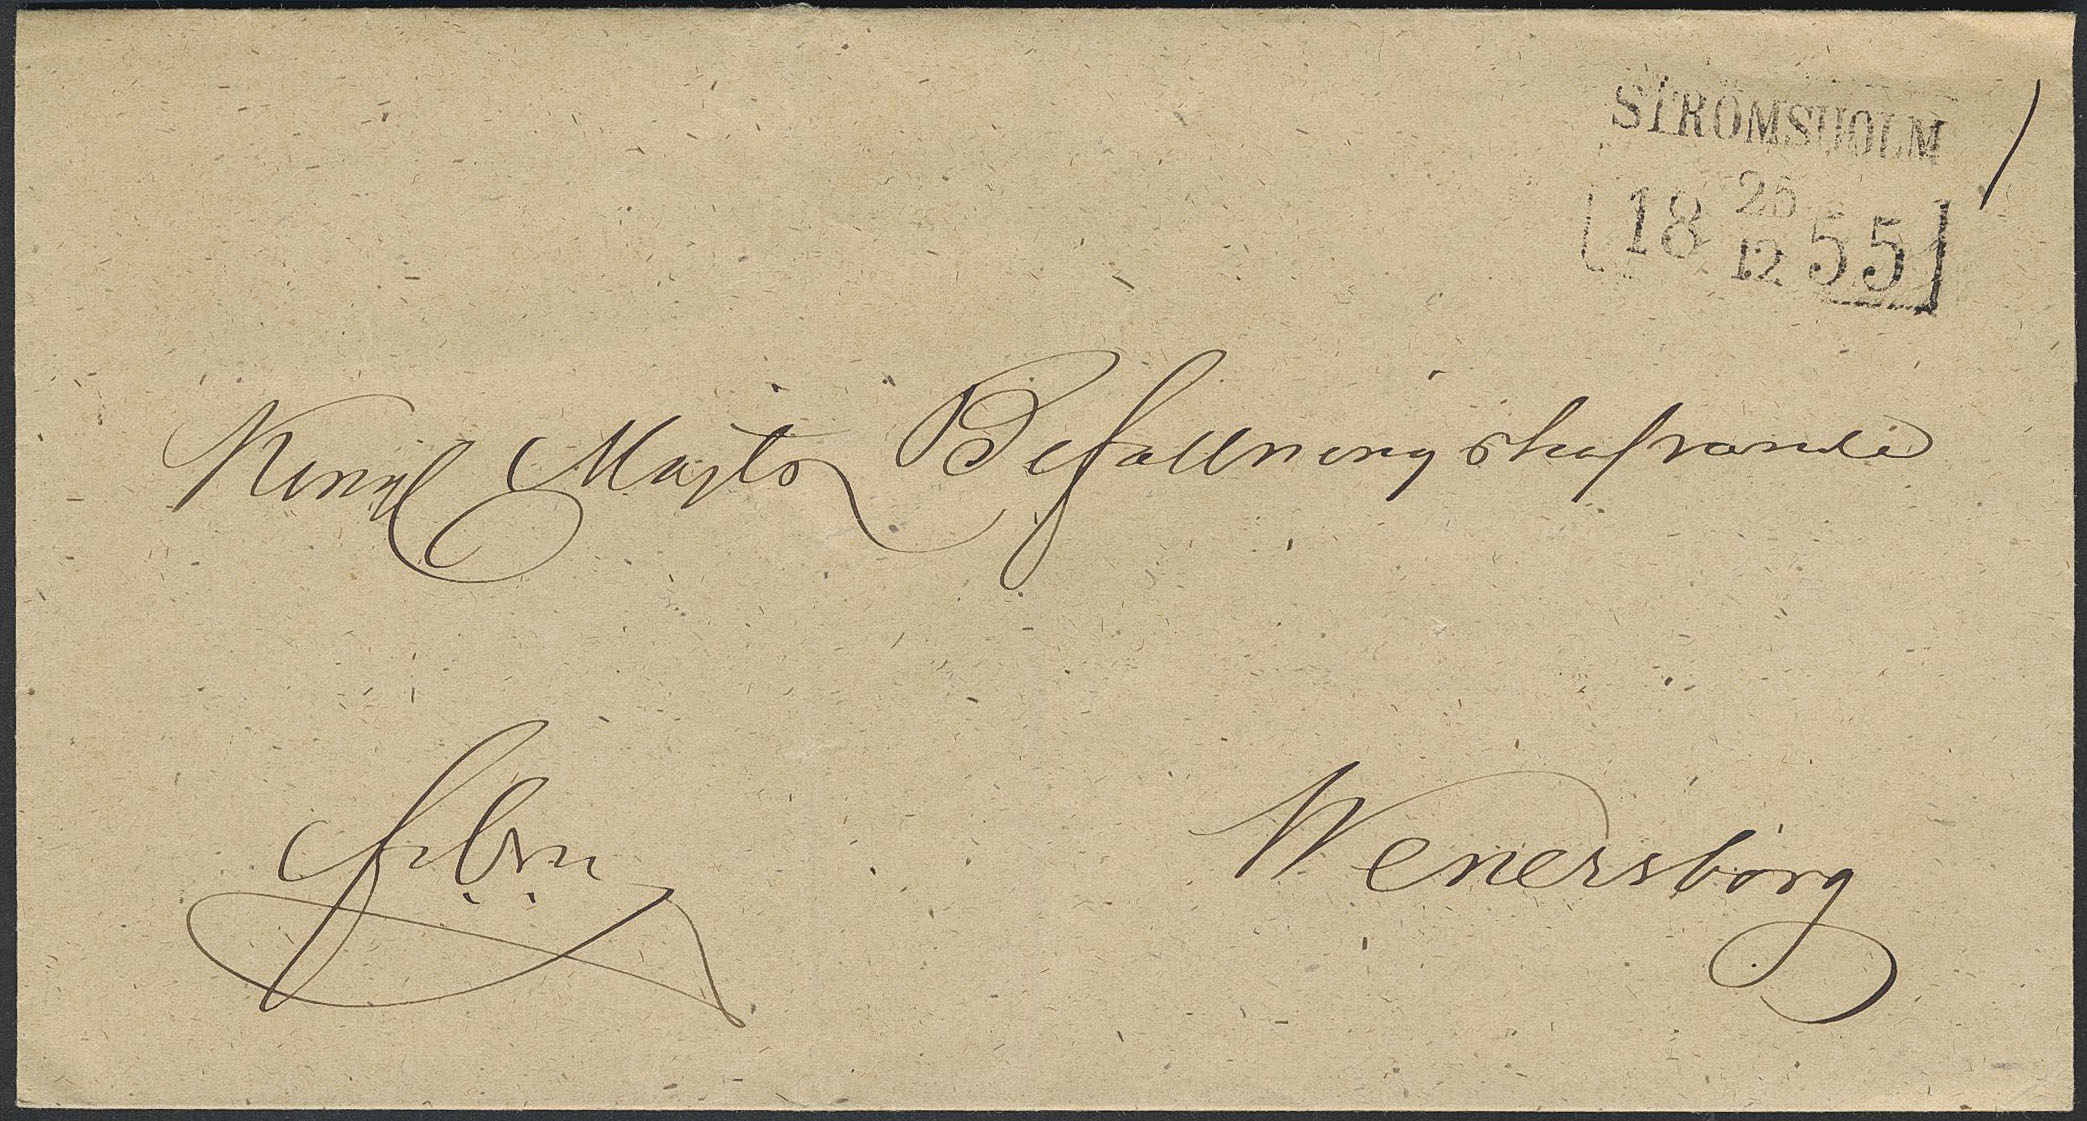 STRÖMSHOLM
18 25/12 55
Kongl Majts Befallningshafvande
Wenersborg